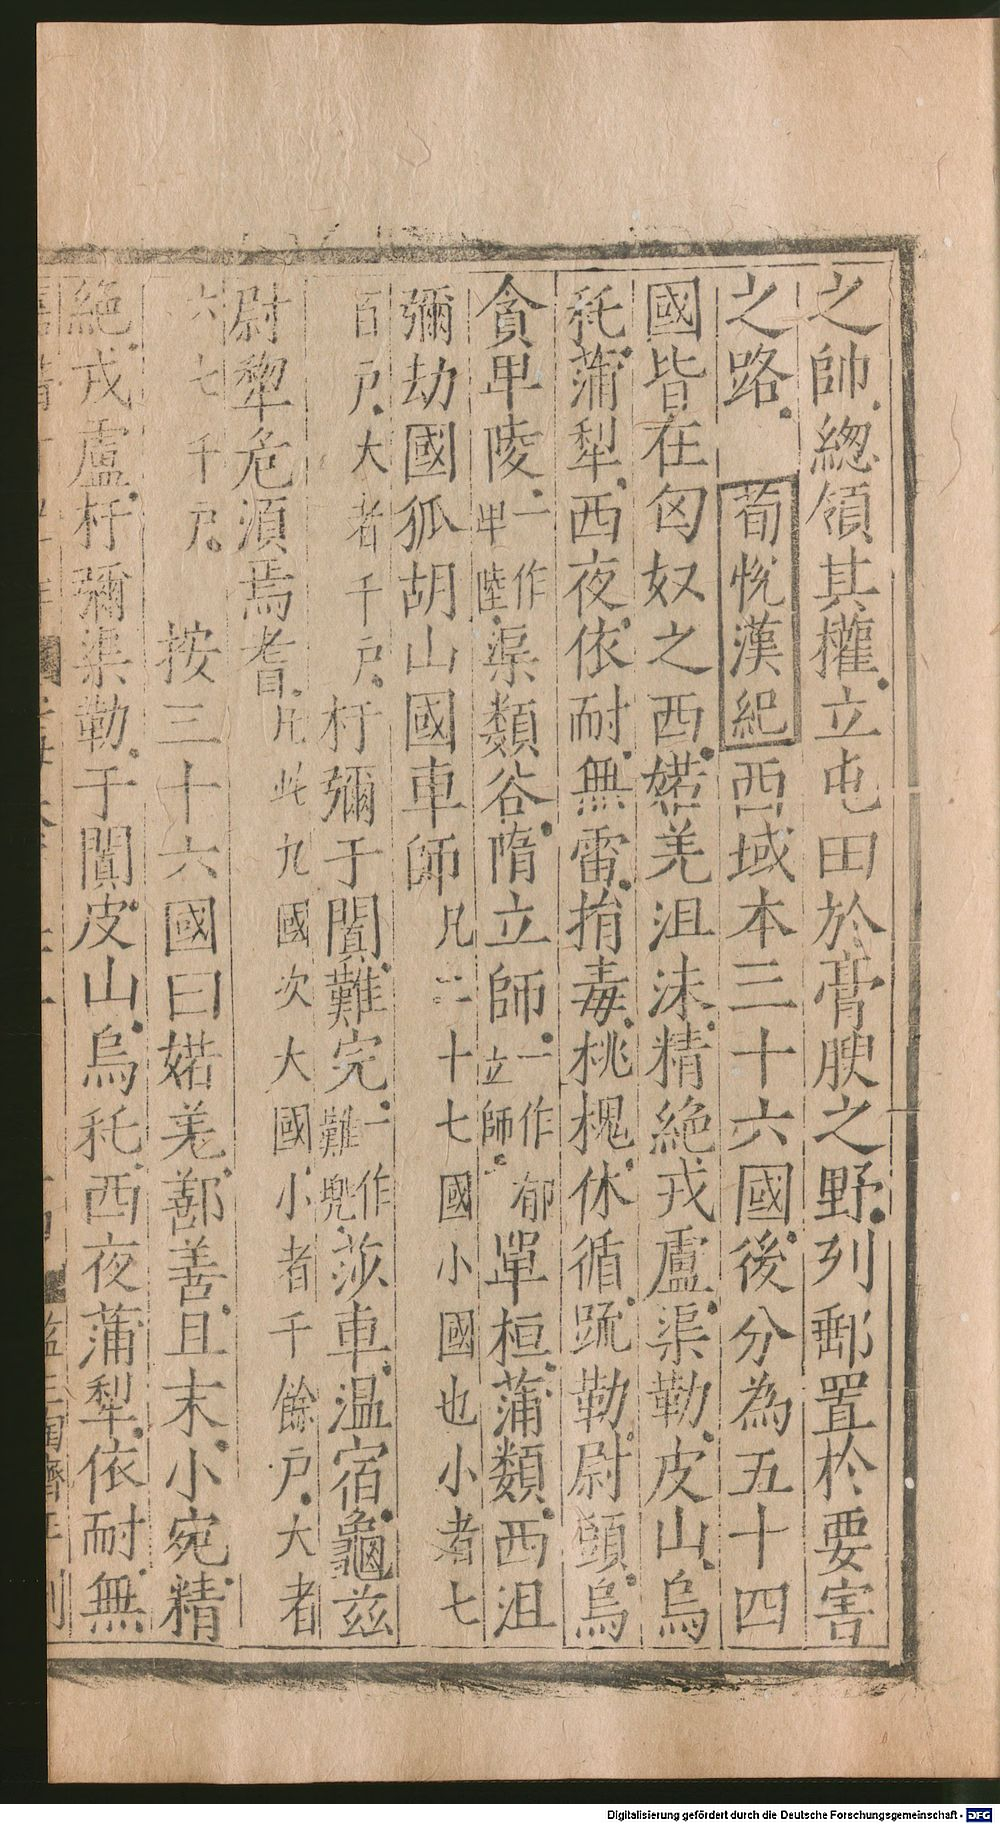 之帥總領其權立屯田於膏腴之野列郵置於要害
之路 荀悅漢紀西域本三十六國後分為五十四
國皆在匈奴之西婼羌沮沫精絶戎盧渠勒皮山烏
秅蒲犁西夜依耐無雷捐毒桃槐休循疏勒尉頭烏
貪卑陵一作卑陸渠類谷隋立師一作郁立師單桓蒲類西沮
彌劫國狐胡山國車師凡二十七國小國也小者七
百戶大者千戶扜彌于闐難完一作難兜莎車温宿龜兹
尉犂危須焉耆凡此九國次大國小者千餘戶大者
六七千戶 按三十六國曰婼羌鄯善且末小宛精
絶戎盧扜彌渠勒于闐皮山烏秅西夜蒲犁依耐無
Digitalisierung gefördert durch die Deutsche Forschungsgemeinschaft - DFG